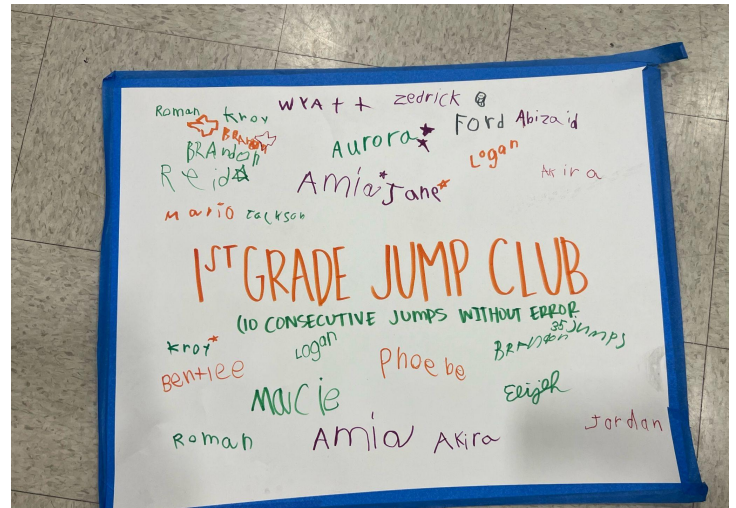 Roman Kroy WYAtt zedrick
BRAndon Ford Abizaid
BRAndon Aurora Logan
Reid Amia Jane Akira
Mario Jackson
1ST GRADE JUMP CLUB
(10 CONSECUTIVE JUMPS WITHOUT ERROR
Kroy Logan BRAndon 35 Jumps
Bentlee Phoebe
Macie Elijah
Roman Amia Akira Jordan